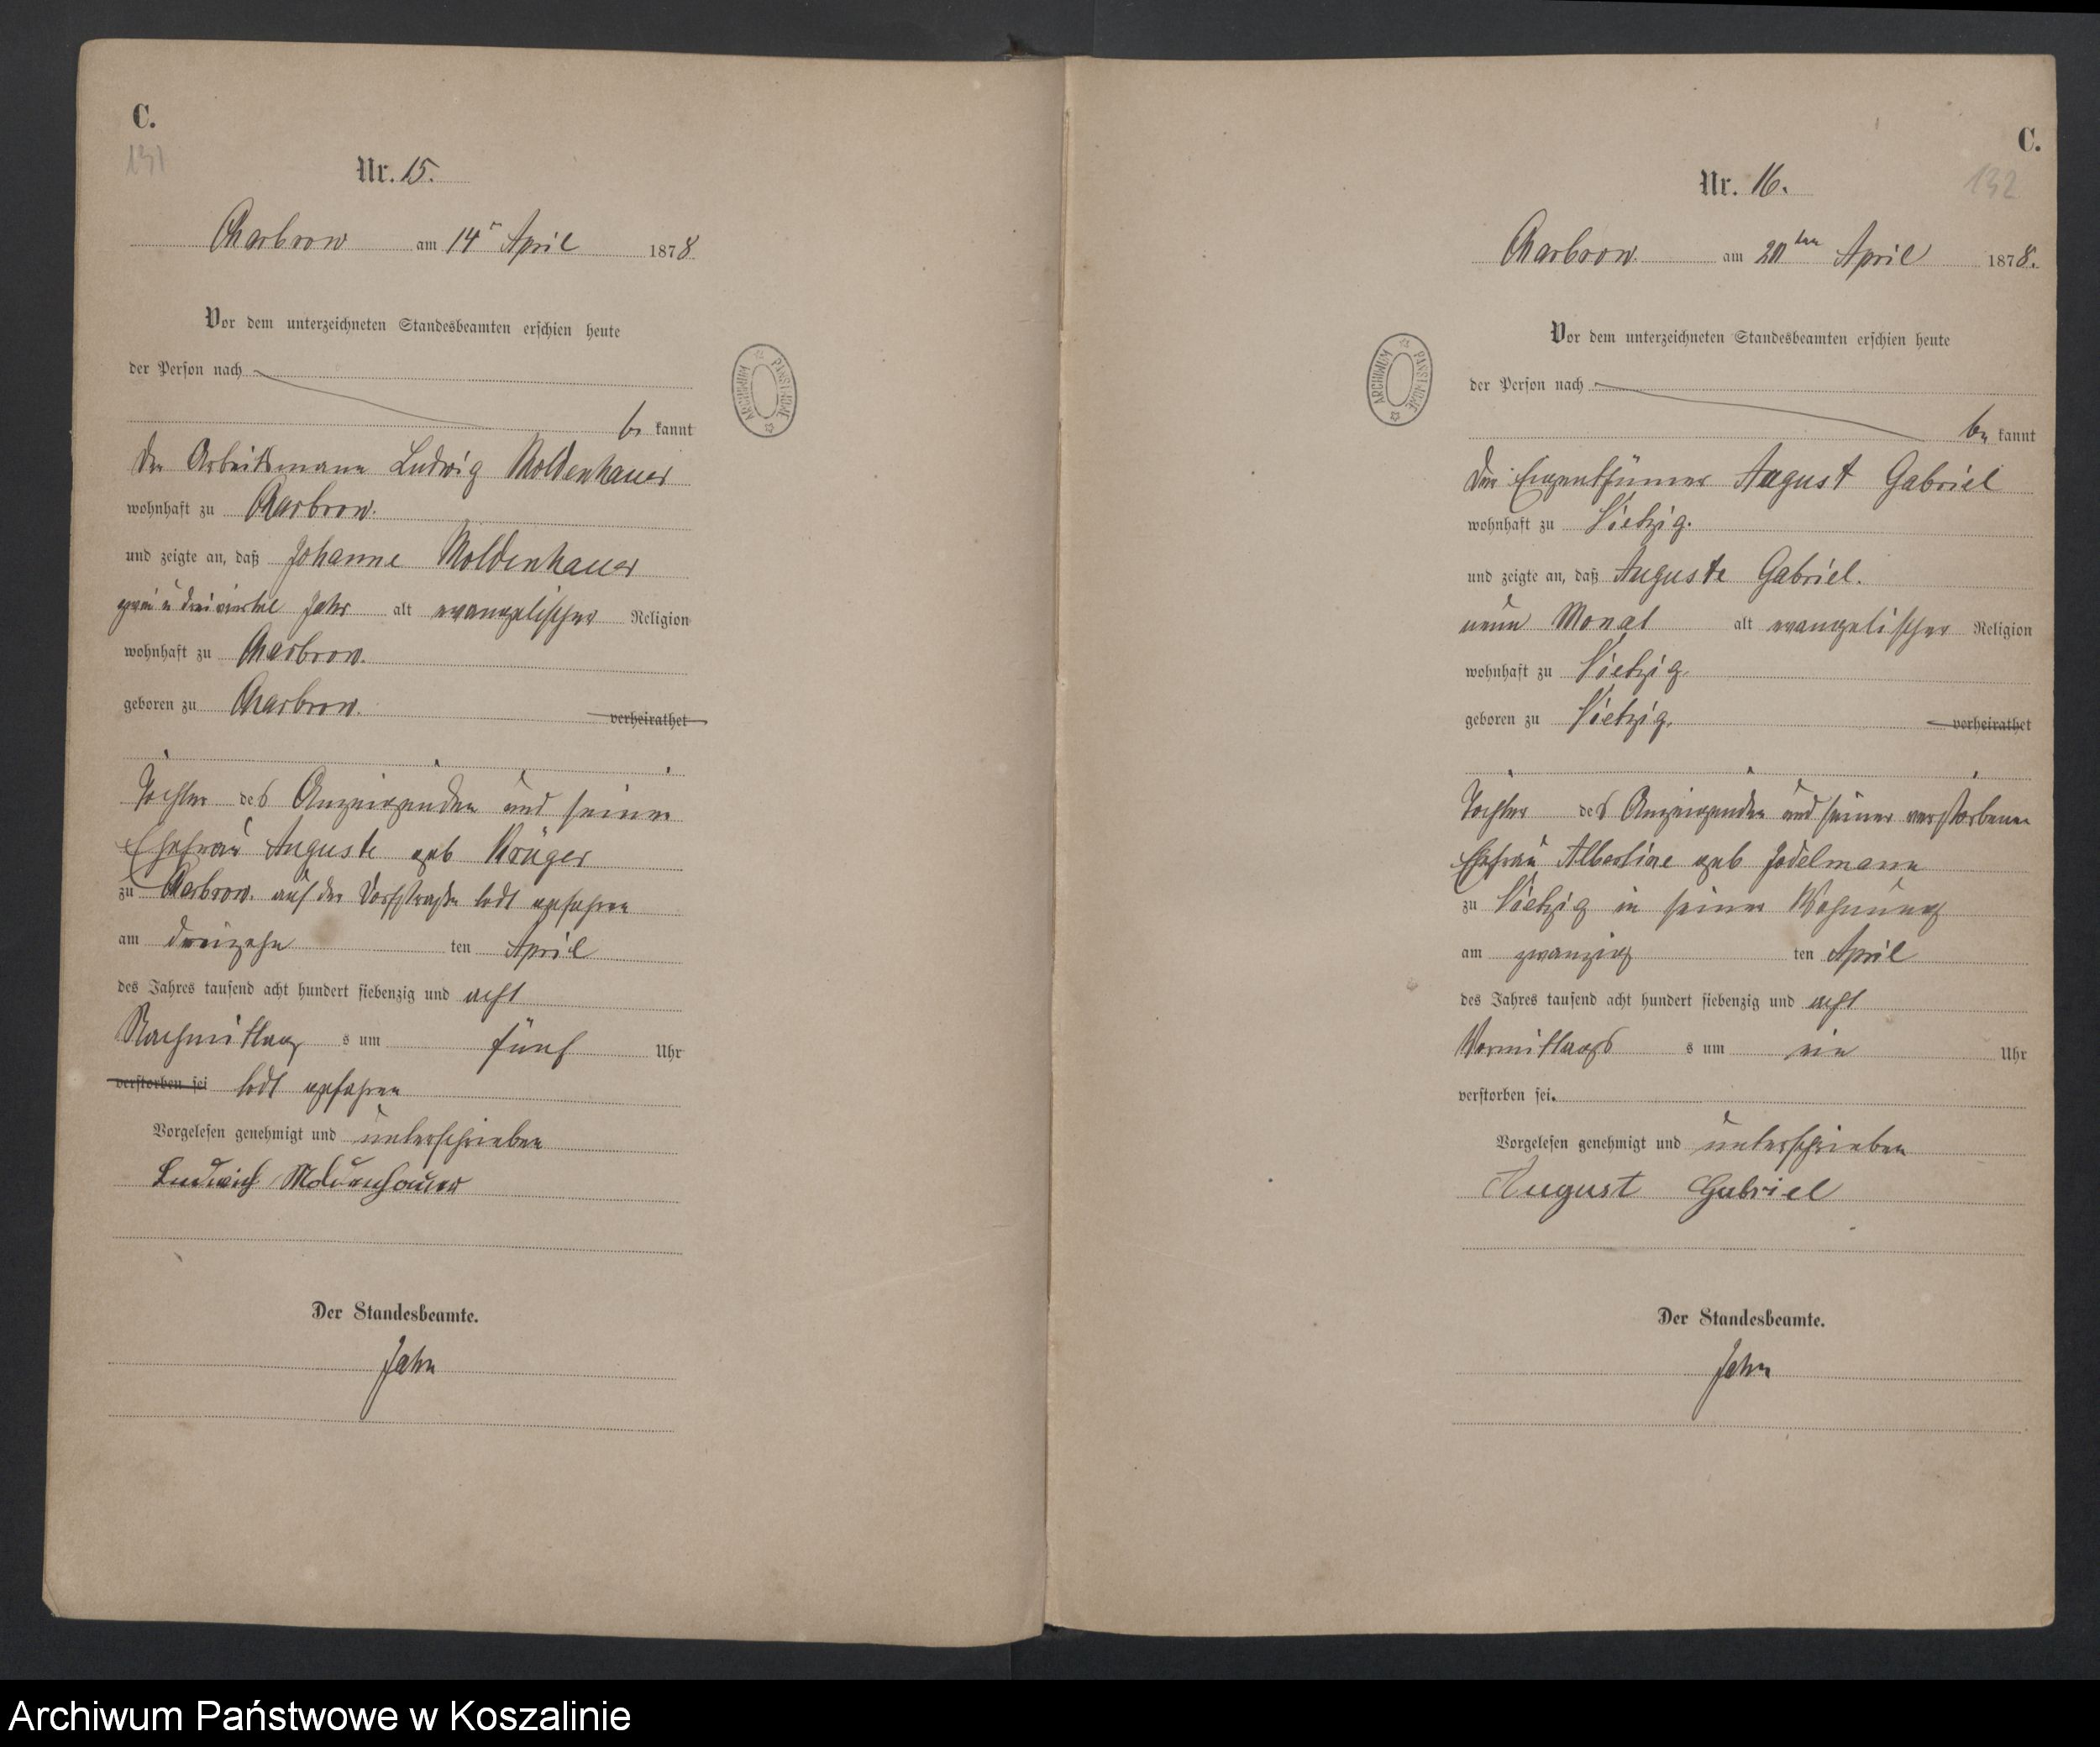 C.
131
Nr. 15.
Charbrow am 14n April 1878
Vor dem unterzeichneten Standesbeamten erschien heute
der Person nach
be kannt
Der Arbeitsmann Ludwig Moldenhauer
wohnhaft zu Charbrow.
und zeigte an, daß Johanne Moldenhauer
zwei u drei viertel Jahr alt evangelischer Religion
wohnhaft zu Charbrow.
geboren zu Charbrow. verheirathet
Tochter des Anzeigenden und seiner
Ehefrau Auguste geb Krüger
zu Charbrow. auf der Dorfstraße todt gefahren
am dreizehn ten April
des Jahres tausend acht hundert siebenzig und acht
Nachmittag s um fünf Uhr
verstorben sei todt gefahren
Vorgelesen genehmigt und unterschrieben
Ludwich Moldenhauer
Der Standesbeamte.
Jahn
ARCHIWUM PAŃSTWOWE
C.
132
Nr. 16.
Charbrow am 20ten April 1878.
Vor dem unterzeichneten Standesbeamten erschien heute
der Person nach
be kannt
Der Eigenthümer August Gabriel
wohnhaft zu Vietzig.
und zeigte an, daß Auguste Gabriel.
neun Monat alt evangelischer Religion
wohnhaft zu Vietzig
geboren zu Vietzig. verheirathet
Tochter des Anzeigenden und seiner verstorbenen
Ehefrau Albertine geb Jodelmann
zu Vietzig in seiner Wohnung
am zwanzig ten April
des Jahres tausend acht hundert siebenzig und acht
Vormittags s um ein Uhr
verstorben sei.
Vorgelesen genehmigt und unterschrieben
August Gabriel
Der Standesbeamte.
Jahn
ARCHIWUM PAŃSTWOWE
Archiwum Państwowe w Koszalinie